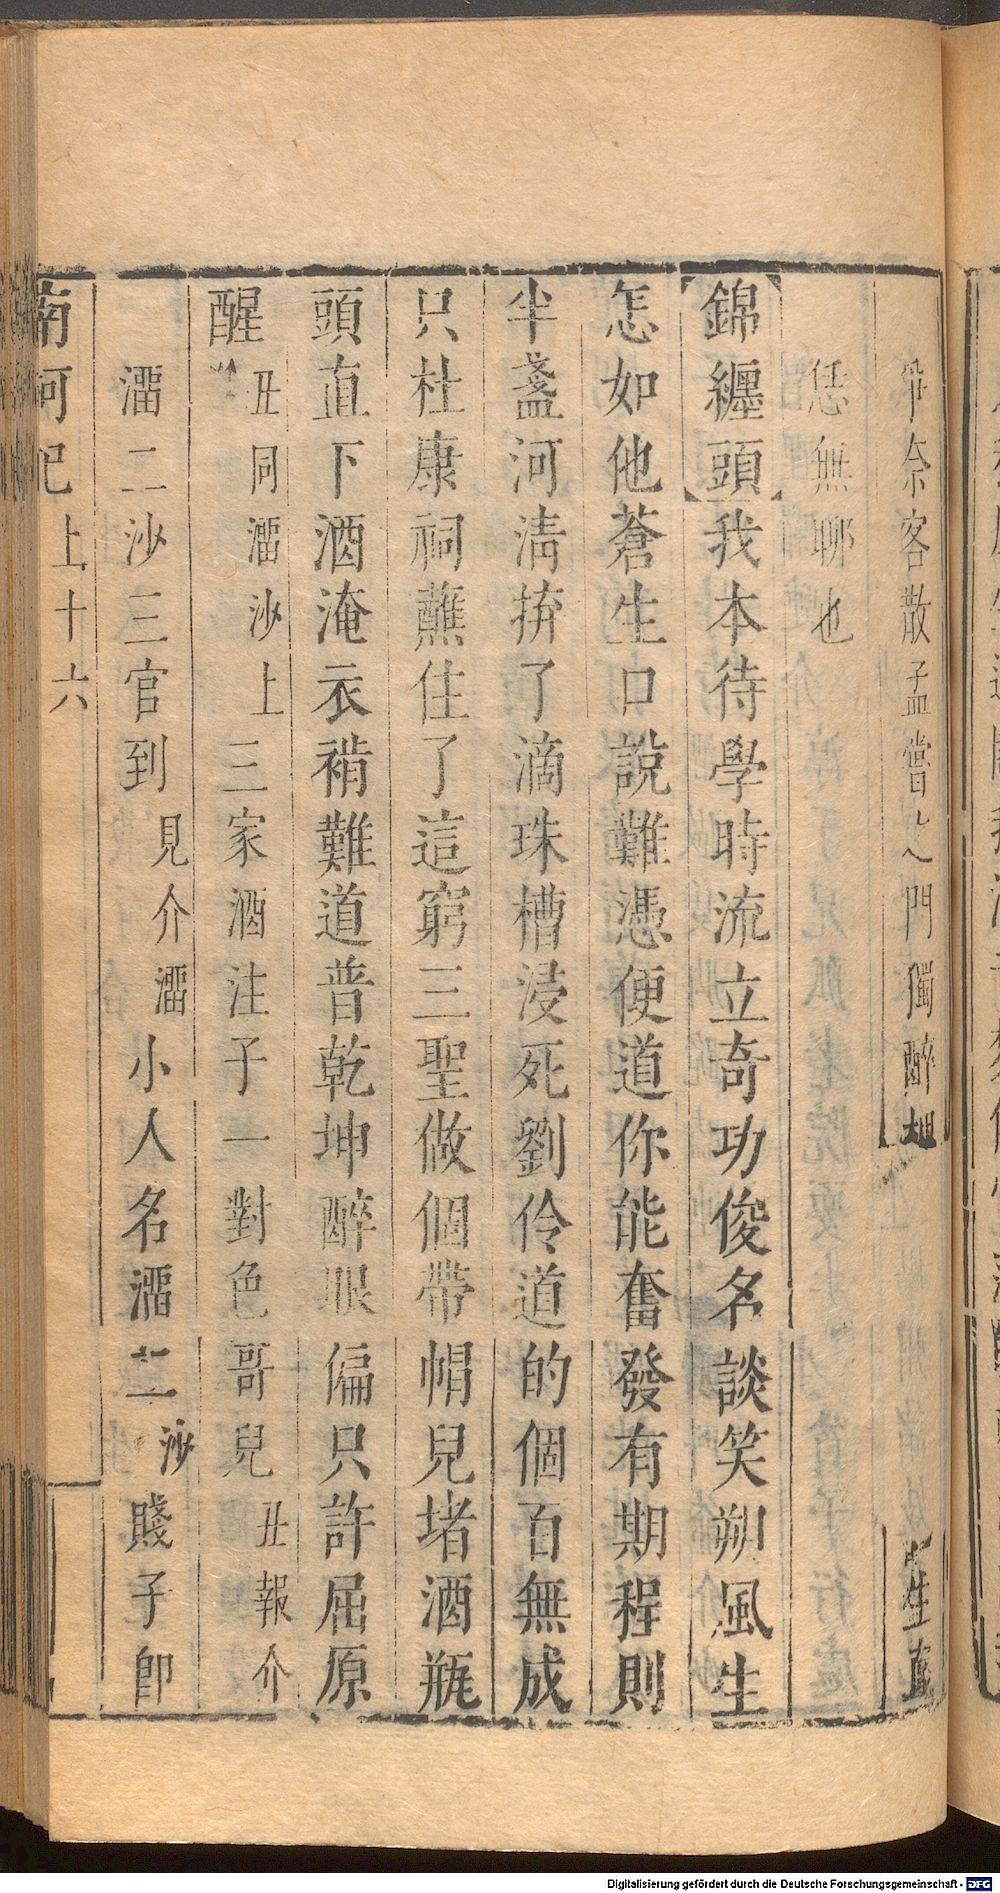 爭奈客散孟嘗之門獨醉 生直
恁無聊也
錦纏頭我本待學時流立奇功俊名談笑朔風生
怎如他蒼生口說難憑便道你能奮發有期程則
半盞河清拚了滴珠槽浸死劉伶道的個百無成
只杜康祠蘸住了這窮三聖做個帶帽兒堵酒瓶
頭直下酒淹衣褃難道普乾坤醉眼偏只許屈原
醒 丑同溜沙上三家酒注子一對色哥兒丑報介
溜二沙三官到見介溜小人名溜二沙賤子卽
南柯記上十六
Digitalisierung gefördert durch die Deutsche Forschungsgemeinschaft - DFG